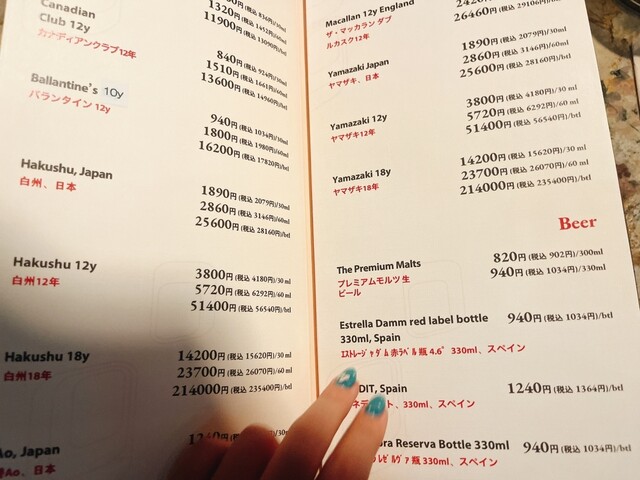 Canadian
Club 12y
カナディアンクラブ12年
1320円(税込 1452円)/60ml
11900円(税込 13090円)/btl
Ballantine's 10y
バランタイン 12y
840円(税込 924円)/30ml
1510円(税込 1661円)/60ml
13600円(税込 14960円)/btl
Hakushu, Japan
白州、日本
940円(税込 1034円)/30ml
1800円(税込 1980円)/60ml
16200円(税込 17820円)/btl
1890円(税込 2079円)/30ml
2860円(税込 3146円)/60ml
25600円(税込 28160円)/btl
Hakushu 12y
白州12年
3800円(税込 4180円)/30 ml
5720円(税込 6292円)/60 ml
51400円(税込 56540円)/btl
Hakushu 18y
白州18年
14200円(税込 15620円)/30 ml
23700円(税込 26070円)/60 ml
214000円(税込 235400円)/btl
Ao, Japan
Ao、日本
Macallan 12y England
ザ・マッカラン ダブ
ルカスク12年
26460円(税込 29106円)/btl
Yamazaki Japan
ヤマザキ、日本
1890円(税込 2079円)/30ml
2860円(税込 3146円)/60ml
25600円(税込 28160円)/btl
Yamazaki 12y
ヤマザキ12年
3800円(税込 4180円)/30 ml
5720円(税込 6292円)/60 ml
51400円(税込 56540円)/btl
Yamazaki 18y
ヤマザキ18年
14200円(税込 15620円)/30 ml
23700円(税込 26070円)/60 ml
214000円(税込 235400円)/btl
Beer
The Premium Malts
プレミアムモルツ 生
ビール
820円(税込 902円)/300ml
940円(税込 1034円)/330ml
Estrella Damm red label bottle
330ml, Spain
940円(税込 1034円)/btl
ｴｽﾄﾚｰｼﾞｬ ﾀﾞﾑ 赤ﾗﾍﾞﾙ 瓶 4.6° 330ml、スペイン
DIT, Spain
1240円(税込 1364円)/btl
330ml、スペイン
Reserva Bottle 330ml
940円(税込 1034円)/btl
ﾚｾﾞﾙｳﾞｧ 瓶 330ml、スペイン